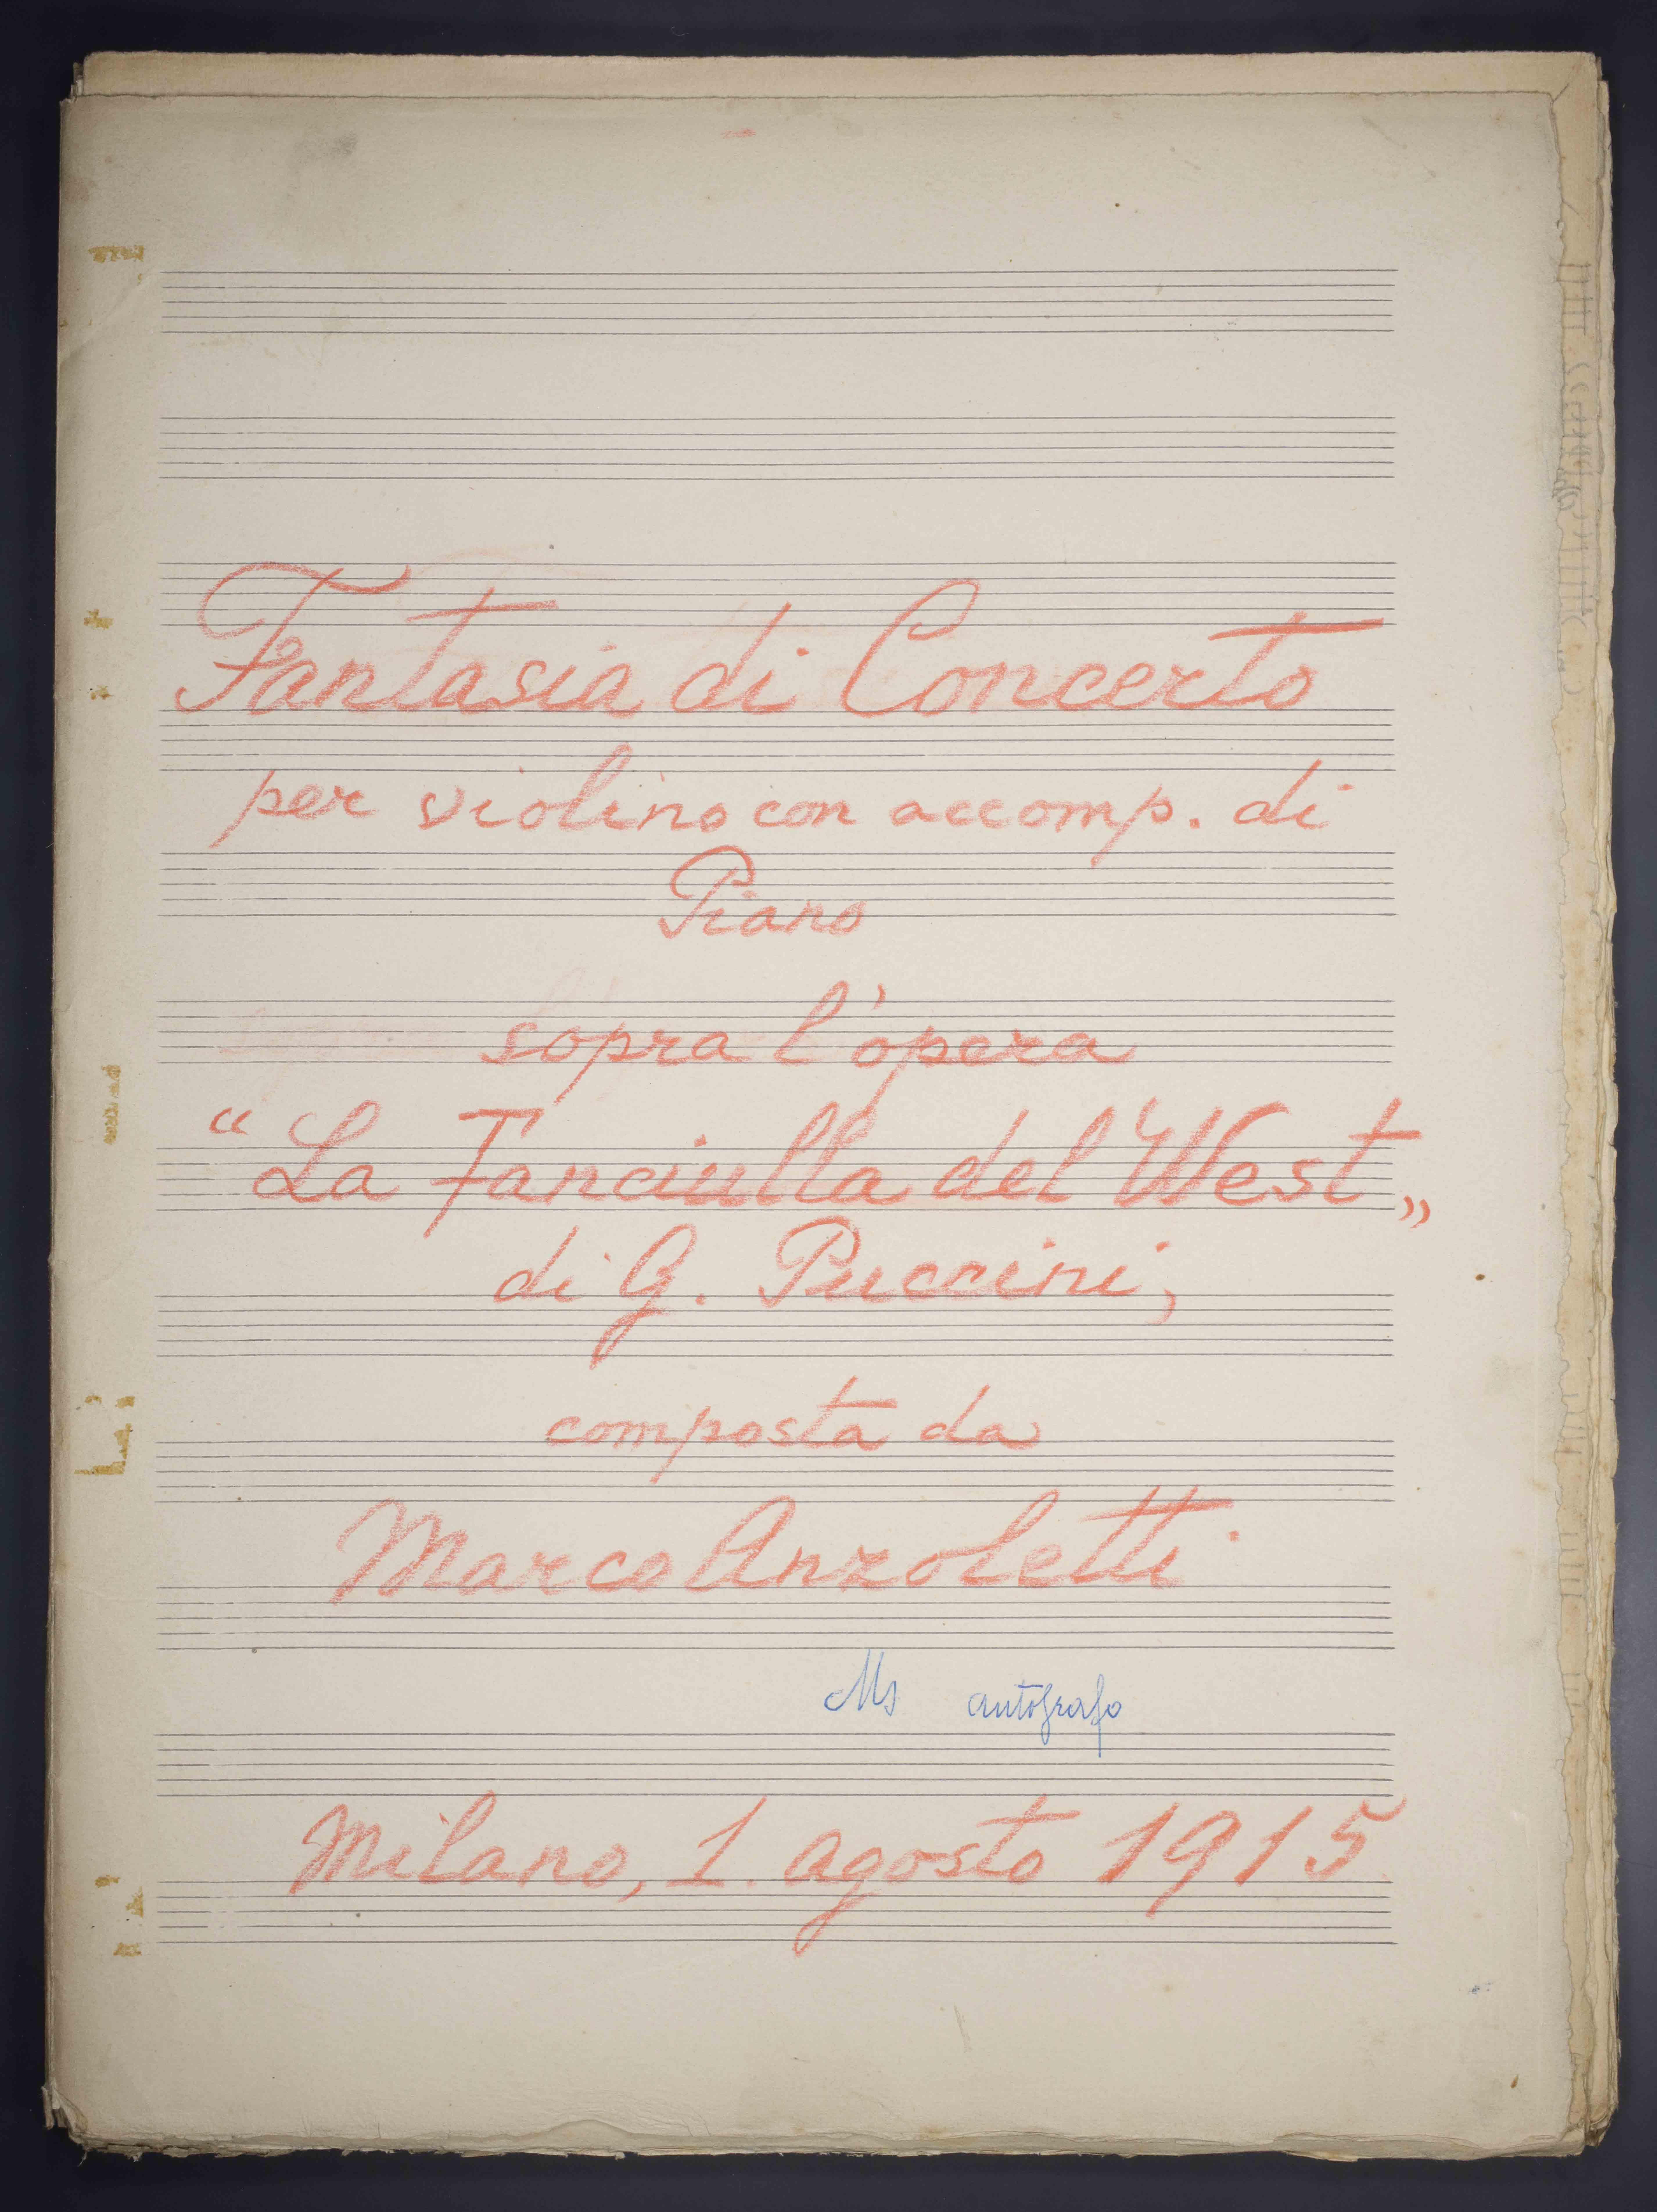 Fantasia di Concerto
per violino con accomp. di
Piano
sopra l'opera
“La Fanciulla del West„
di G. Puccini,
composta da
Marco Anzoletti
Ms autografo
Milano, 1. agosto 1915